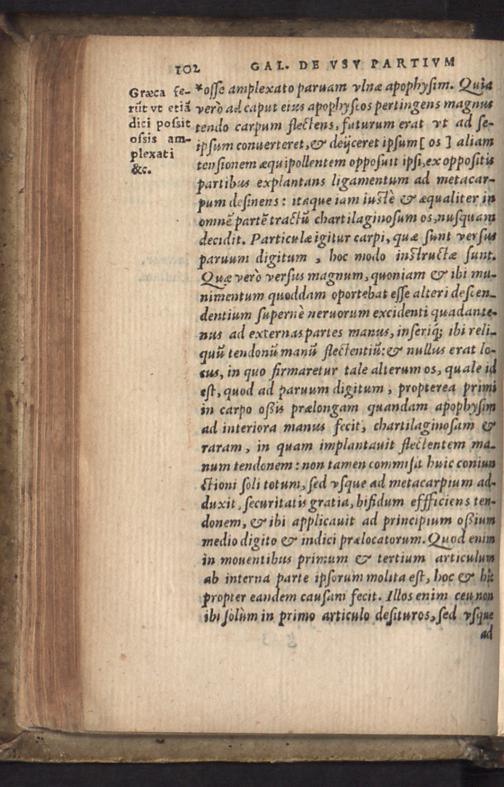 102 GAL. DE VSV PARTIVM
Græca fe-
rūt vt etiā
dici possit
ossis am-
plexati
&c.
*osse amplexato paruam vlnæ apophysim. Quia
verò ad caput eius apophyseos pertingens magnus
tendo carpum flectens, futurum erat vt ad se-
ipsum conuerteret, & deijceret ipsum[os] aliam
tensionem æquipollentem opposuit ipsi, ex oppositis
partibus explantans ligamentum ad metacar-
pum desinens: itaque iam iustè & æqualiter in
omnē partē tractū chartilaginosum os, nusquam
decidit. Particulæ igitur carpi, quæ sunt versus
paruum digitum, hoc modo instructæ sunt.
Quæ verò versus magnum, quoniam & ibi mu-
nimentum quoddam oportebat esse alteri descen-
dentium supernè neruorum excidenti quadante-
nus ad externas partes manus, inseriq; ibi reli-
quū tendonū manū flectentiū: & nullus erat lo-
cus, in quo firmaretur tale alterum os, quale id
est, quod ad paruum digitum, propterea primi
in carpo oßis prælongam quandam apophysim
ad interiora manus fecit, chartilaginosam &
raram, in quam implantauit flectentem ma-
num tendonem: non tamen commisit huic coniun
ctioni soli totum, sed vsque ad metacarpium ad-
duxit, securitatis gratia, bifidum effficiens ten-
donem, & ibi applicauit ad principium oßium
medio digito & indici prælocatorum. Quod enim
in mouentibus primum & tertium articulum
ab interna parte ipsorum molita est, hoc & hic
propter eandem causam fecit. Illos enim ceu non
ibi solùm in primo articulo desituros, sed vsque
ad